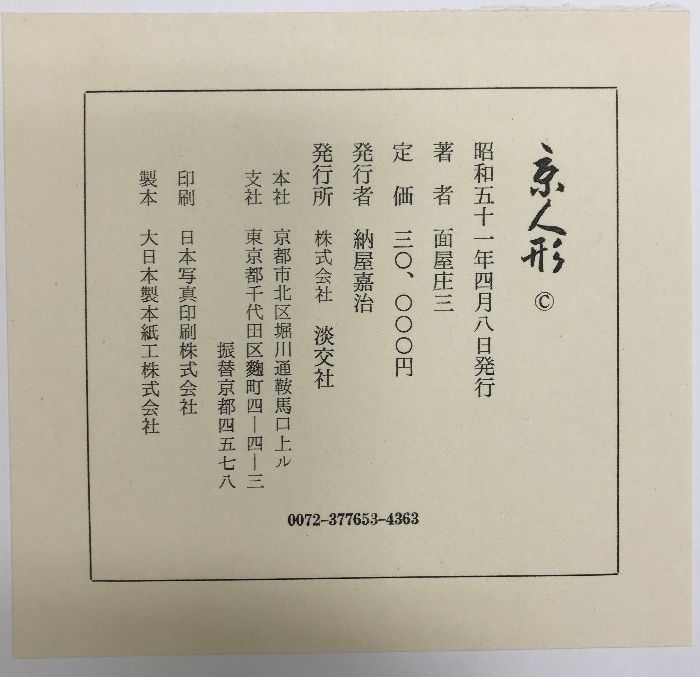 京人形 ©
昭和五十一年四月八日発行
著者 面屋庄三
定価 三〇、〇〇〇円
発行者 納屋嘉治
発行所 株式会社 淡交社
本社 京都市北区堀川通鞍馬口上ル
支社 東京都千代田区麹町四―四―三
振替京都四五七八
印刷 日本写真印刷株式会社
製本 大日本製本紙工株式会社
0072-377653-4363